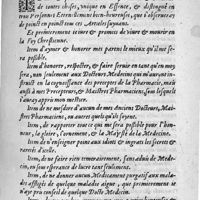 de toutes choses, unique en Essence, & distingué en
trois Personnes Eternellement bien-heureuses, que i'obserueray
de point en point tous ces Articles suyuans.
Et premierement iure & promets de viure & mourir en
la Foy Chrestienne.
Item d'aymer & honorer mes parens le mieux qu'il me se-
ra possible.
Item d'honorer, respecter, & faire seruir en tant qu'en moy
sera, non seulement aux Docteurs Medecins qui m'auront in-
struit en la cognoissance des preceptes de la Pharmacie, mais
aussi à mes Precepteurs, & Maistres Pharmaciens, sous lesquels
i'auray appris mon mestier.
Item de ne mesdire d'aucun de mes Anciens Docteurs, Mai-
stres Pharmaciens, ou autres quels qu'ils soyent.
Item, de rapporter tout ce qui me sera possible pour l'hon-
neur, la gloire, l'ornement, & la Majesté de la Medecine.
Item de n'enseigner point aux idiots & ingrats les secrets &
raretez d'icelle.
Item, de ne faire rien temerairement, sans aduis de Mede-
cin, ou sous esperance de lucre tant seulement.
Item, de ne donner aucun Medicament purgatif aux mala-
des affligez de quelque maladie aigue, que premierement ie
n'aye pris conseil de quelque Docte Medecin.